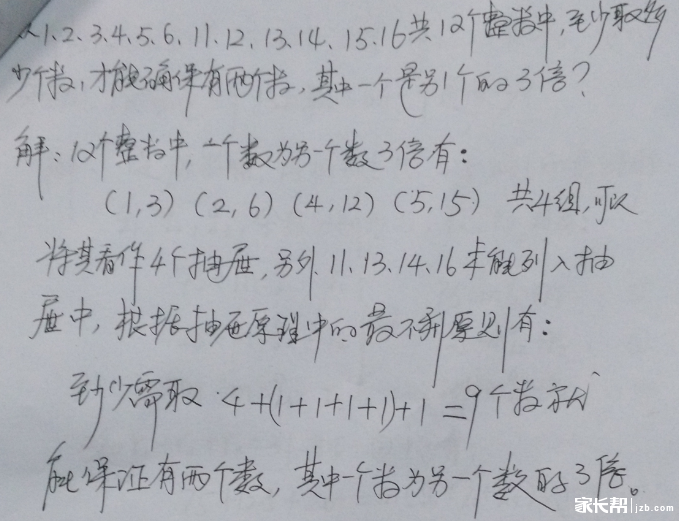 从1.2.3.4.5.6.11.12.13.14.15.16共12个整数中,至少取多
少个数,才能确保有两个数,其中一个是另1个的3倍?
解:12个整数中,一个数为另一个数3倍有:
(1,3)(2,6)(4,12)(5,15) 共4组,可以
将其看作4个抽屉,另外11.13.14.16未能列入抽
屉中,根据抽屉原理中的最不利原则有:
至少需取 4+(1+1+1+1)+1=9个数就
能保证有两个数,其中一个数为另一个数的3倍。
家长帮 jzb.com